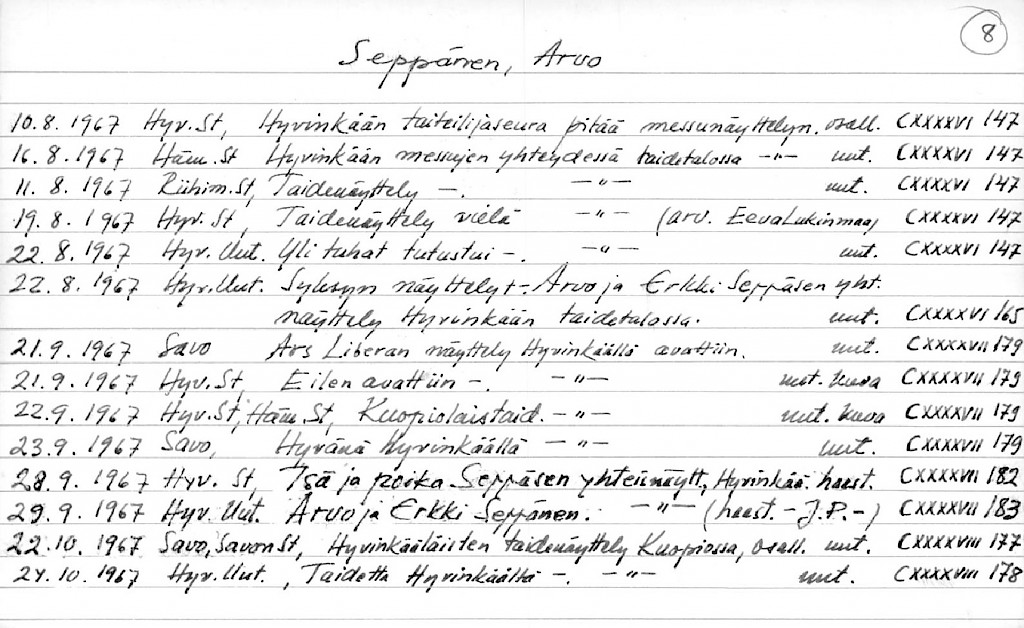 8
Seppänen, Arvo
10.8. 1967 Hyv. St, Hyvinkään taiteilijaseura pitää messunäyttelyn. osall. CXXXXVI 147
16.8. 1967 Häm. St Hyvinkään messujen yhteydessä taidetalossa -"- uut. CXXXXVI 147
11. 8. 1967 Riihim. St, Taidenäyttely -. -"- uut. CXXXXVI 147
19.8. 1967 Hyv. St, Taidenäyttely vielä -"- (arv. Eeva Lukinmaa) CXXXXVI 147
22. 8. 1967 Hyv. Uut. Yli tuhat tutustui -. -"- uut. CXXXXVI 147
22. 8. 1967 Hyv. Uut. Syksyn näyttelyt -. Arvo ja Erkki Seppäsen yht.
näyttely Hyvinkään taidetalossa. uut. CXXXXVI 165
21. 9. 1967 Savo Ars Liberan näyttely Hyvinkäällä avattiin. uut. CXXXXVII 179
21. 9. 1967 Hyv. St, Eilen avattiin -. -"- uut. kuva CXXXXVII 179
22.9. 1967 Hyv. St, Häm. St, Kuopiolaistaid. -"- uut. kuva CXXXXVII 179
23.9. 1967 Savo, Hyvänä Hyvinkäällä -"- uut. CXXXXVII 179
28. 9. 1967 Hyv. St, Isä ja poika Seppäsen yhteisnäytt, Hyvinkää. haast. CXXXXVII 182
29. 9. 1967 Hyv. Uut. Arvo ja Erkki Seppänen. -"- (haast. - J.P. -) CXXXXVII 183
22. 10. 1967 Savo, Savon St, Hyvinkääläisten taidenäyttely Kuopiossa, osall. uut. CXXXXVIII 177
24. 10. 1967 Hyv. Uut., Taidetta Hyvinkäältä -. -"- uut. CXXXXVIII 178